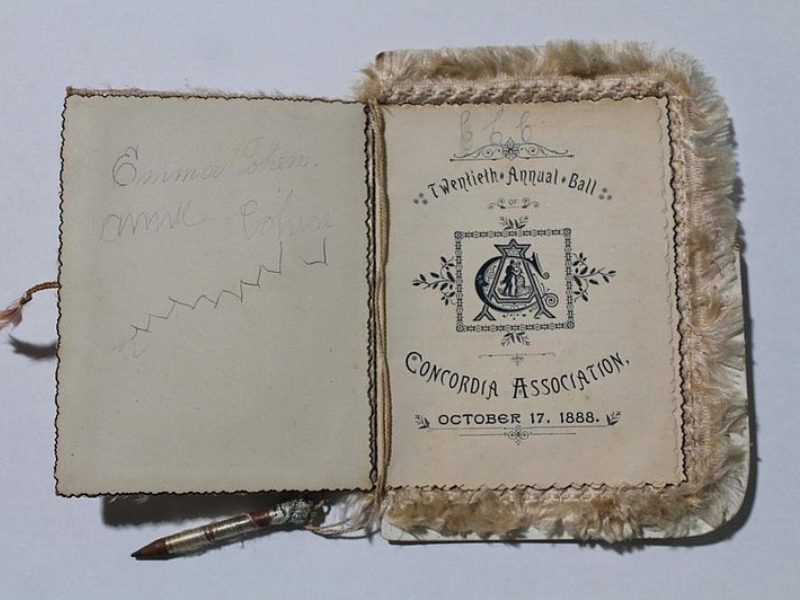 Emma Cohen.
Cohen
E C C
Twentieth • Annual • Ball
OF
CA
CONCORDIA ASSOCIATION,
OCTOBER 17, 1888.